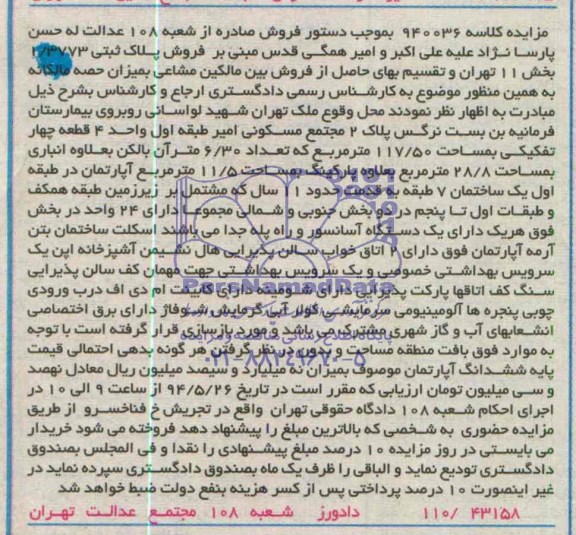 مزایده کلاسه ۹۴۰۰۳۶ بموجب دستور فروش صادره از شعبه ۱۰۸ عدالت له حسن
پارسا نژاد علیه علی اکبر و امیر همگی قدس مبنی بر فروش پلاک ثبتی ۲/۴۷۷۳
بخش ۱۱ تهران و تقسیم بهای حاصل از فروش بین مالکین مشاعی بمیزان حصه مالکانه
به همین منظور موضوع به کارشناس رسمی دادگستری ارجاع و کارشناس بشرح ذیل
مبادرت به اظهار نظر نمودند محل وقوع ملک تهران شهید لواسانی روبروی بیمارستان
فرمانیه بن بست نرگس پلاک ۲ مجتمع مسکونی امیر طبقه اول واحد ۴ قطعه چهار
تفکیکی بمساحت ۱۱۷/۵۰ مترمربع که تعداد ۶/۳۰ مترآن بالکن بعلاوه انباری
بمساحت ۲۸/۸ مترمربع بعلاوه پارکینگ بمساحت ۱۱/۵ مترمربع آپارتمان در طبقه
اول یک ساختمان ۷ طبقه به قدمت حدود ۱۱ سال که مشتمل بر زیرزمین طبقه همکف
و طبقات اول تا پنجم در دو بخش جنوبی و شمالی مجموعا دارای ۲۴ واحد در بخش
فوق هریک دارای یک دستگاه آسانسور و راه پله جدا می باشند اسکلت ساختمان بتن
آرمه آپارتمان فوق دارای ۲ اتاق خواب سالن پذیرایی هال نشیمن آشپزخانه اپن یک
سرویس بهداشتی خصوصی و یک سرویس بهداشتی جهت مهمان کف سالن پذیرایی
سنگ کف اتاقها پارکت پذیرایی دارای شومینه دارای کابینت ام دی اف درب ورودی
چوبی پنجره ها آلومینیومی سرمایشی کولر آبی گرمایش شوفاژ دارای برق اختصاصی
انشعابهای آب و گاز شهری مشترک می باشد و مورد بازسازی قرار گرفته است با توجه
به موارد فوق بافت منطقه مساحت و بدون در نظر گرفتن هر گونه بدهی احتمالی قیمت
پایه ششدانگ آپارتمان موصوف بمیزان نه میلیارد و سیصد میلیون ریال معادل نهصد
و سی میلیون تومان ارزیابی که مقرر است در تاریخ ۹۴/۵/۲۶ از ساعت ۹ الی ۱۰ در
اجرای احکام شعبه ۱۰۸ دادگاه حقوقی تهران واقع در تجریش خ فناخسرو از طریق
مزایده حضوری به شخصی که بالاترین مبلغ را پیشنهاد دهد فروخته می شود خریدار
می بایستی در روز مزایده ۱۰ درصد مبلغ پیشنهادی را نقدا و فی المجلس بصندوق
دادگستری تودیع نماید و الباقی را ظرف یک ماه بصندوق دادگستری سپرده نماید در
غیر اینصورت ۱۰ درصد پرداختی پس از کسر هزینه بنفع دولت ضبط خواهد شد
۱۱۰/ ۴۳۱۵۸ دادورز شعبه ۱۰۸ مجتمع عدالت تهران